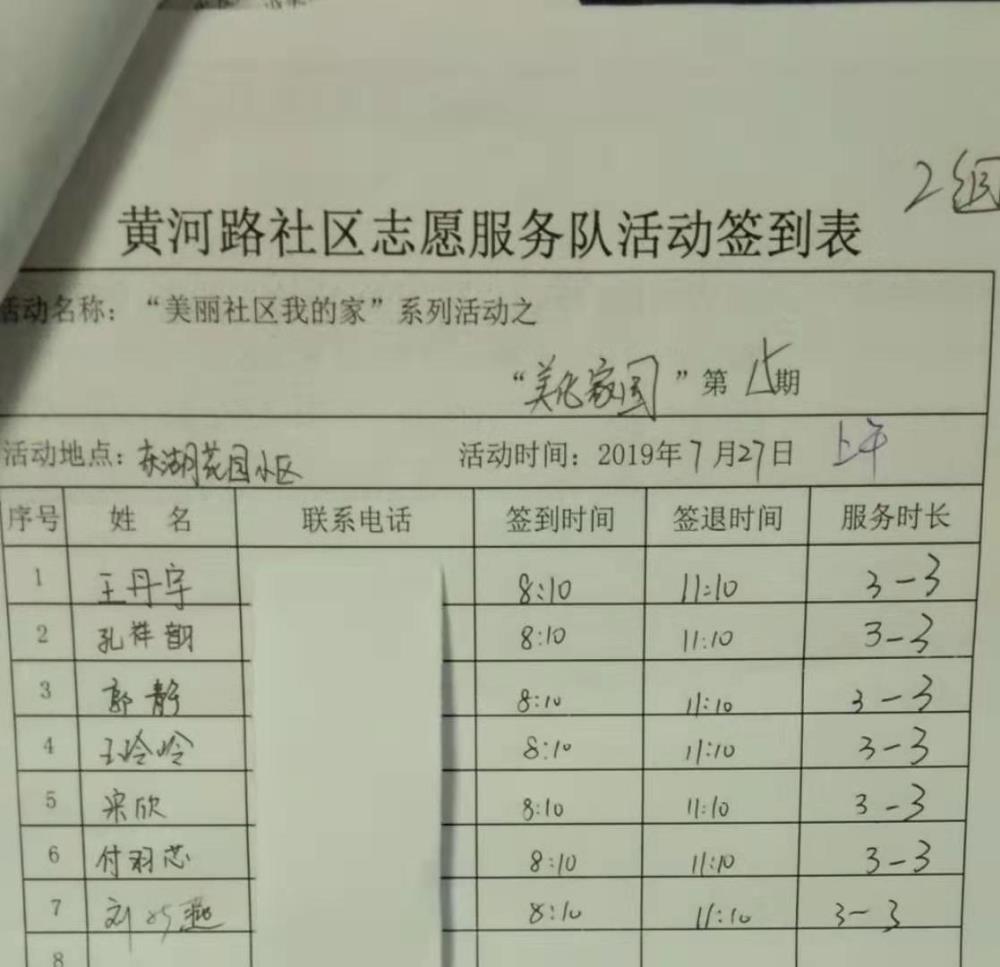 2组
黄河路社区志愿服务队活动签到表
活动名称：“美丽社区我的家”系列活动之
“美化家园”第15期
活动地点：东湖花园小区 活动时间：2019年7月27日 上午
序号 姓名 联系电话 签到时间 签退时间 服务时长
1 王丹宇 8:10 11:10 3-3
2 孔祥韵 8:10 11:10 3-3
3 郭静 8:10 11:10 3-3
4 王玲玲 8:10 11:10 3-3
5 宋欣 8:10 11:10 3-3
6 付羽芯 8:10 11:10 3-3
7 刘 燕 8:10 11:10 3-3
8